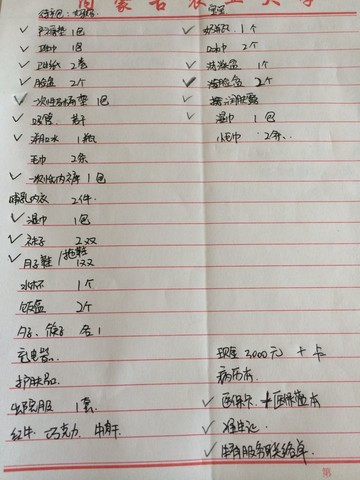 待产包: 妈妈
✓ 产褥垫 1包
✓ 卫生纸 2卷
✓ 脸盆 2个
✓ 一次性 垫 1包
✓ 吸管 若干
✓ 漱口水 1瓶
毛巾 2条
✓ 一次性内裤 1包
哺乳内衣 2件
✓ 湿巾 1包
✓ 袜子 2双
✓ 月子鞋/拖鞋 1双
水杯 1个
饭盒 2个
勺子、筷子 各1
充电器
护肤品
出院服 1套
红牛 巧克力 牛肉干
宝宝
✓ 奶瓶 1个
口水巾 2个
✓ 洗澡盆 1个
✓ 洗脸盆 2个
✓ 湿巾 1包
小毛巾 2条
现金 3000元 + 卡
病历本
✓ 医保卡 + 医保蓝本
✓ 准生证
✓ 生育服务联络单
第